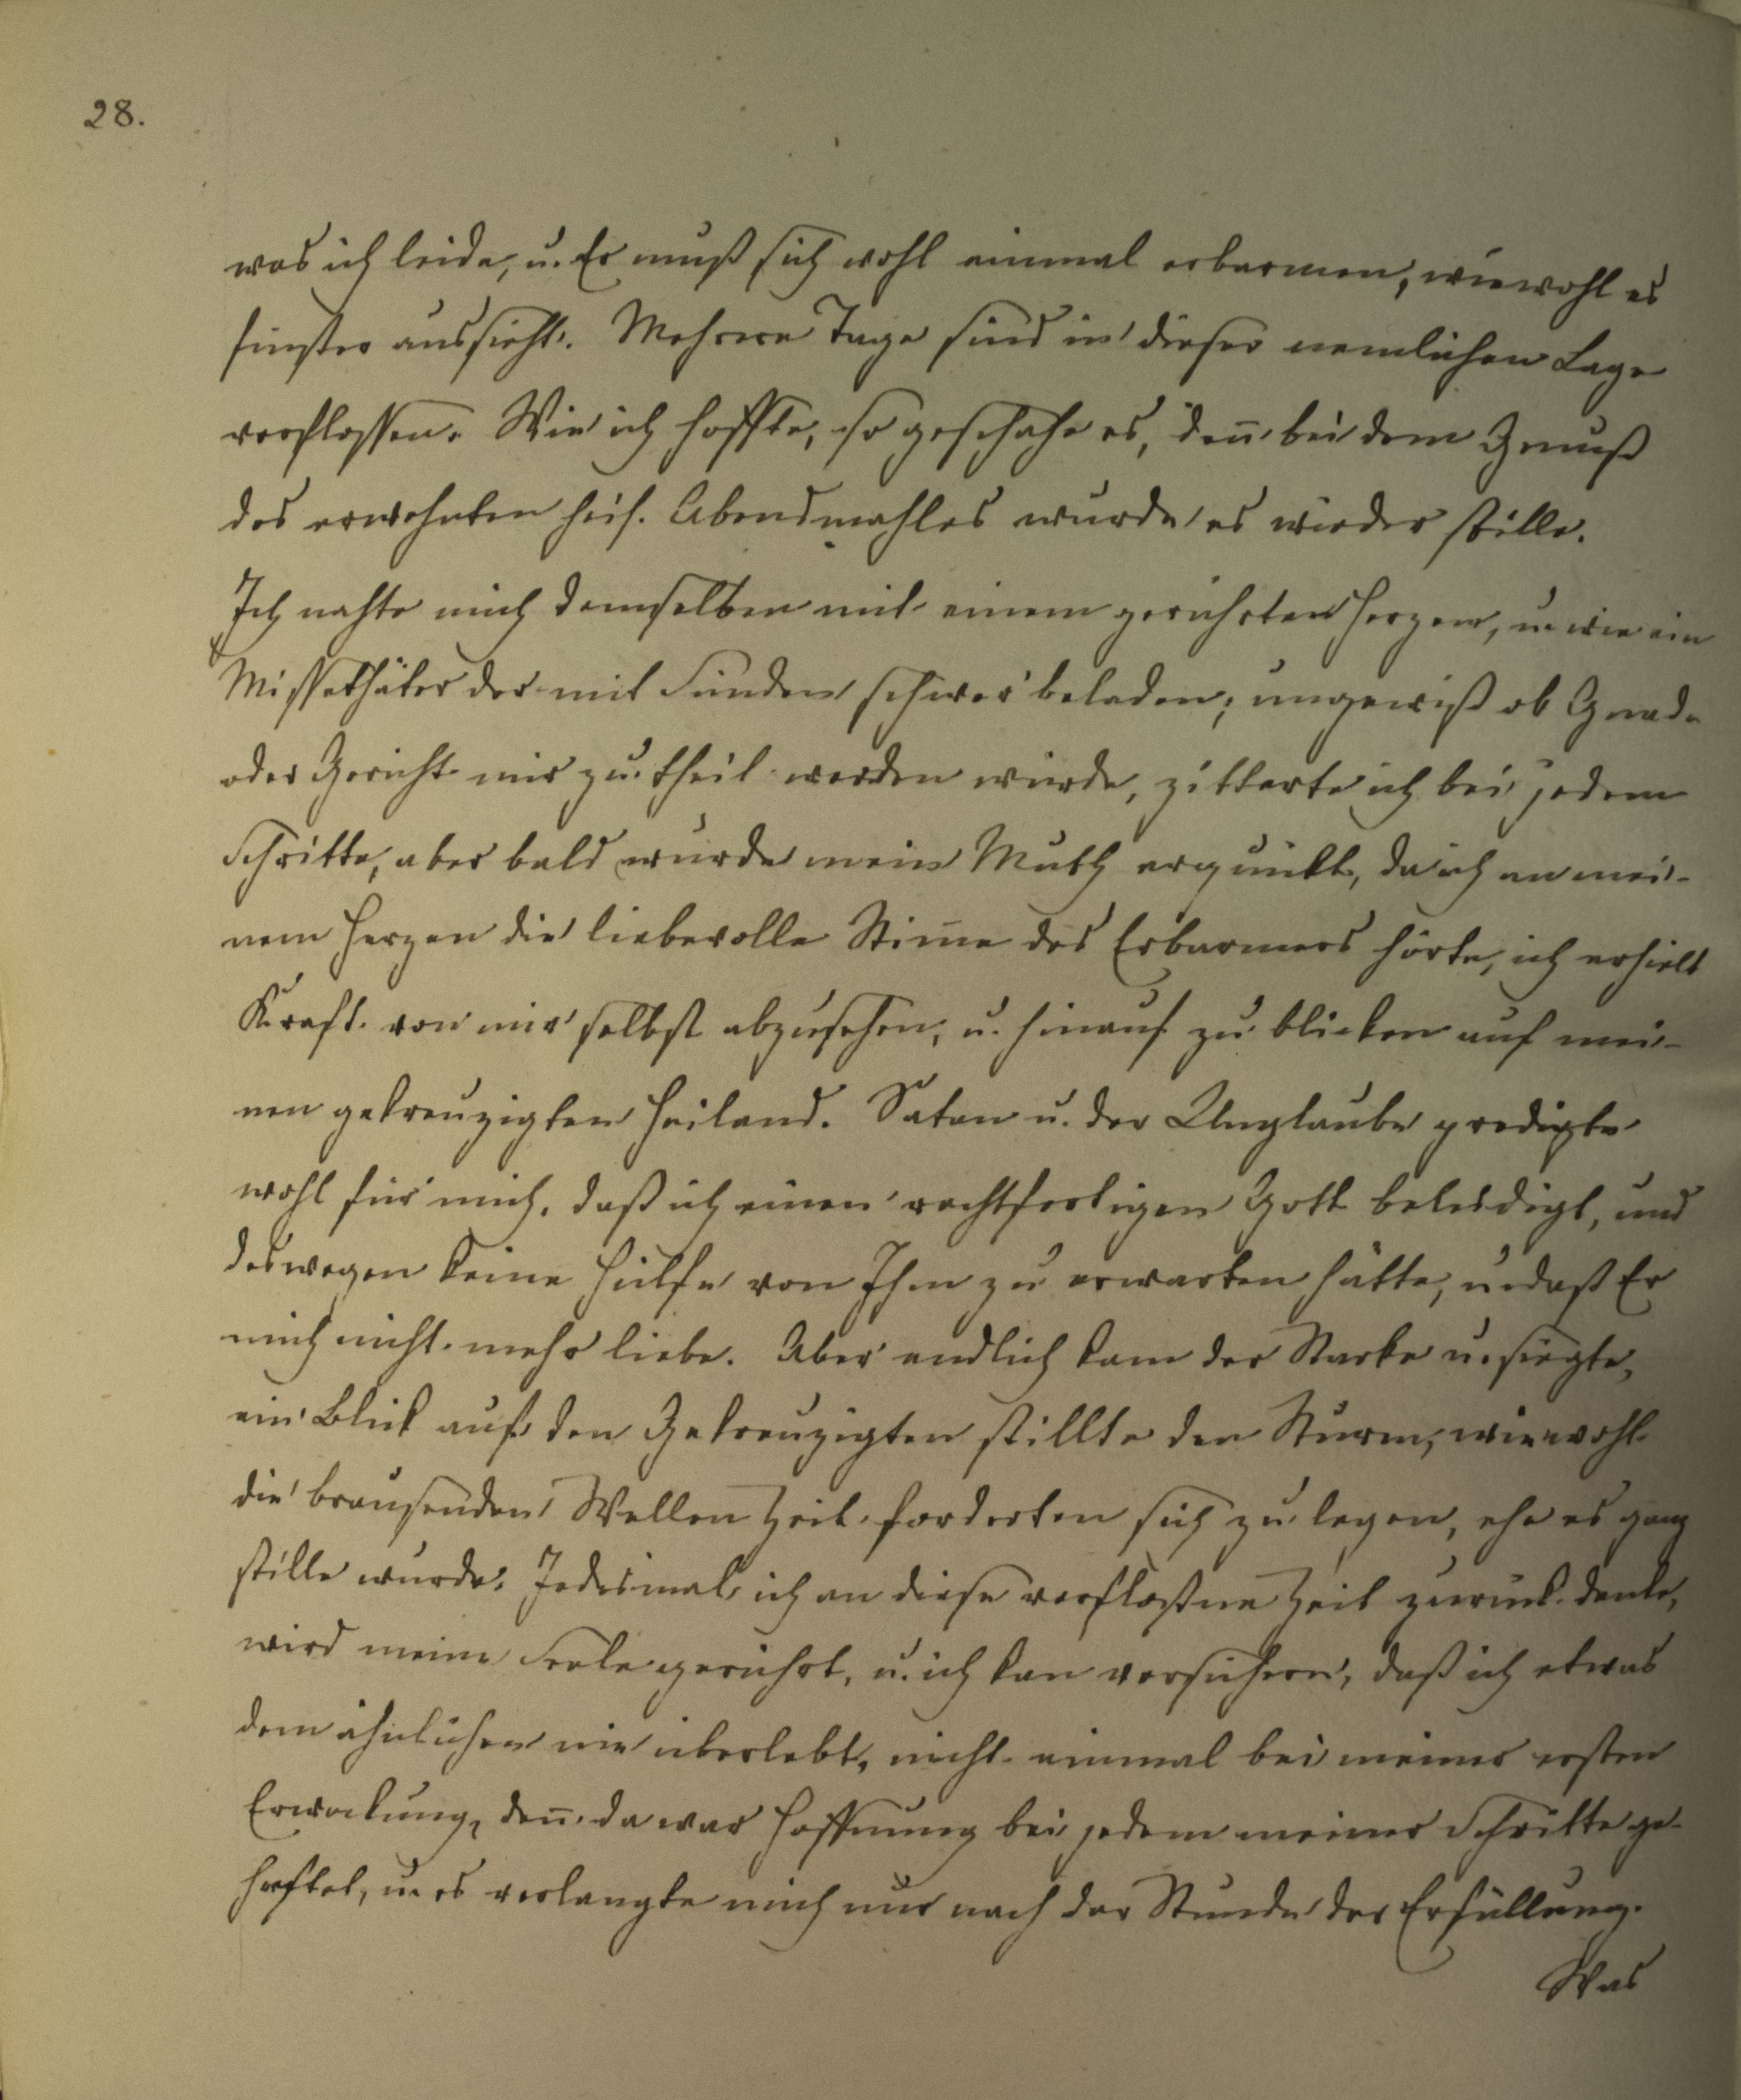 28.
was ich leide, u. Er muß sich wohl einmal erbarmen, wiewohl es
finster aussieht. Mehrere Tage sind in dieser nemlichen Lage
verflossen. Wie ich hoffte, so geschahe es, den̄ bei dem Genuß
des erwehnten heil. Abendmahles wurde es wieder stille.
Ich nahte mich demselben mit einem gerührten Herzen, u. wie ein
Missethäter der mit Sünden schwer beladen; ungewiß ob Gnade
oder Gericht mir zu theil werden würde, zitterte ich bei jedem
Schritte, aber bald wurde mein Muth erquikt, da ich an mei-
nem Herzen die liebevolle Stim̄e des Erbarmers hörte, ich erhielt
Kraft von mir selbst abzusehen, u. hinauf zu blicken auf mei-
nen gekreuzigten Heiland. Satan u. der Unglaube predigte
wohl für mich, daß ich einen rechtfertigen Gott beleidigt, und
deswegen keine Hülfe von Ihm zu erwarten hätte, u. daß Er
mich nicht mehr liebe. Aber endlich kam der Starke u. siegte,
ein Blick auf den Gekreuzigten stillte den Sturm, wiewohl
die brausenden Wellen Zeit forderten sich zu legen, ehe es ganz
stille wurde. Jedesmal ich an diese verfloßne Zeit zurück denke,
wird meine Seele gerührt, u. ich kan versichern, daß ich etwas
dem ähnlichen nie überlebt, nicht einmal bei meiner ersten
Erweckung, den̄ da war Hoffnung bei jedem meiner Schritte ge-
heftet, u. es verlangte mich nur nach der Stunde der Erfüllung.
Was